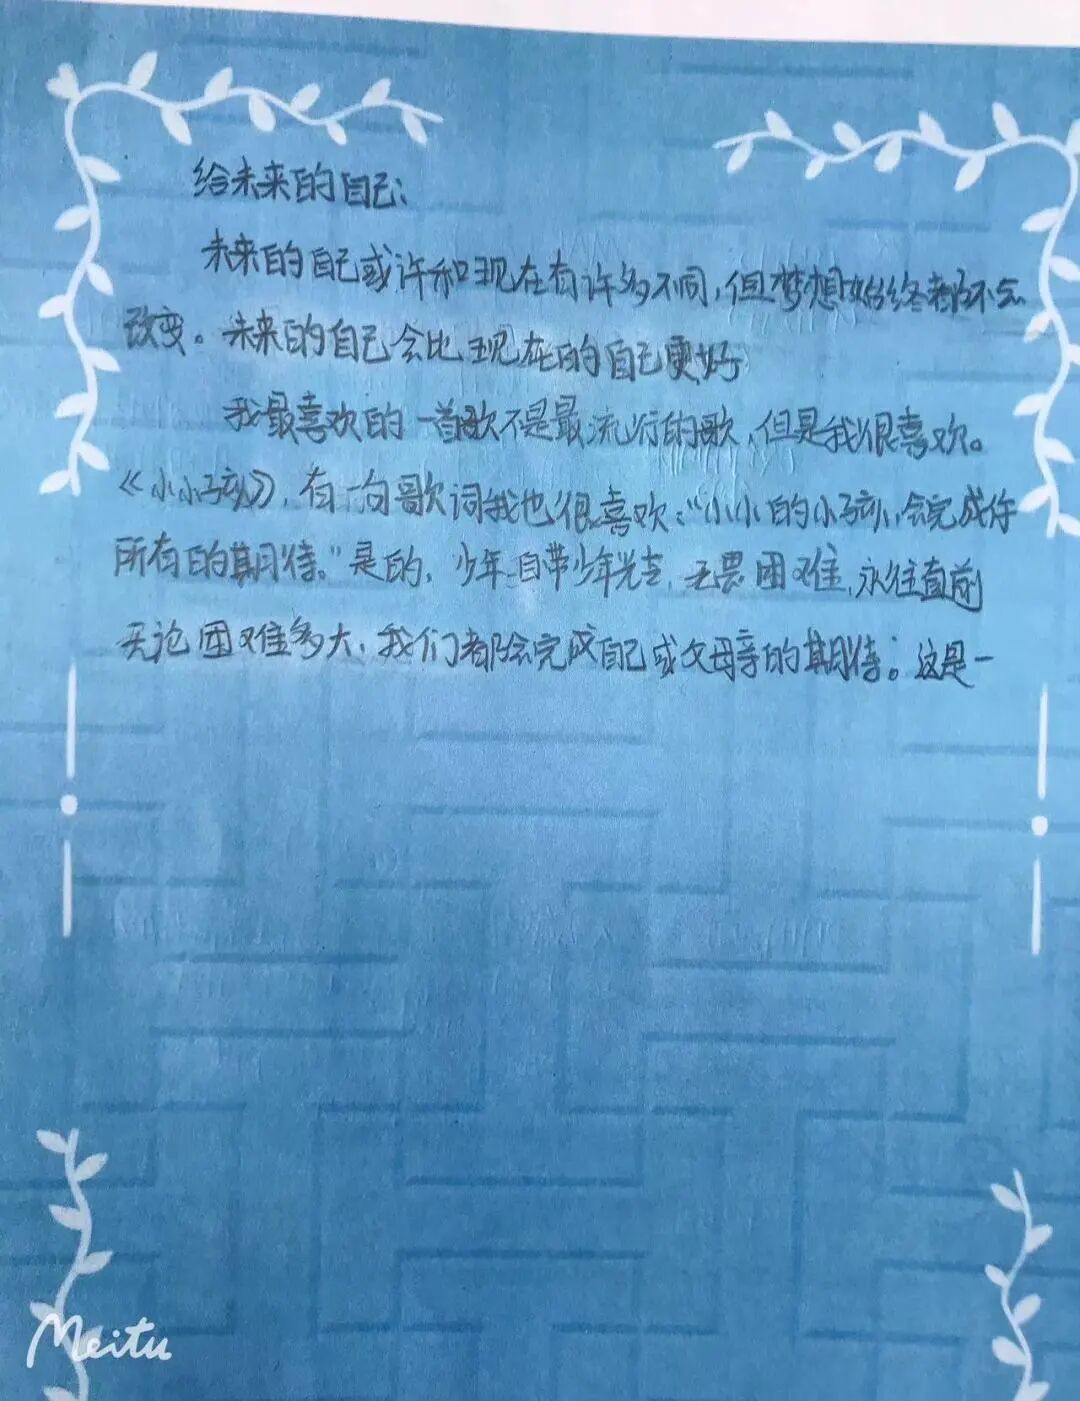 给未来的自己：
未来的自己或许和现在有许多不同，但梦想始终都不会
改变。未来的自己会比现在的自己更好
我最喜欢的一首歌不是最流行的歌，但是我很喜欢。
《小小孩》，有一句歌词我也很喜欢：“小小的小孩，会完成你
所有的期待。”是的，少年自带少年光芒，无畏困难，永往直前
无论困难多大，我们都会完成自己或父母亲的期待。这是一
Meitu